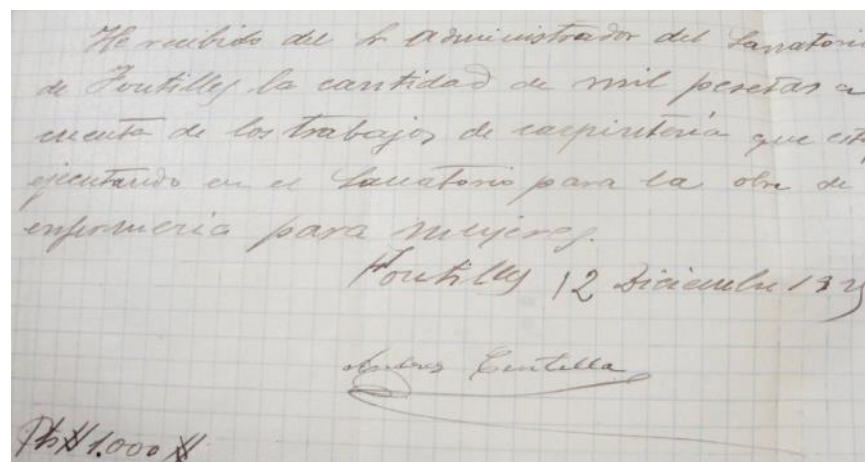 He recibido del Sr Administrador del Sanatorio
de Fontilles la cantidad de mil pesetas a
cuenta de los trabajos de carpinteria que est
ejecutando en el Sanatorio para la obra de
enfermeria para mujeres.
Fontilles 12 Diciembre 192
Andres Centella
Pts # 1.000 #